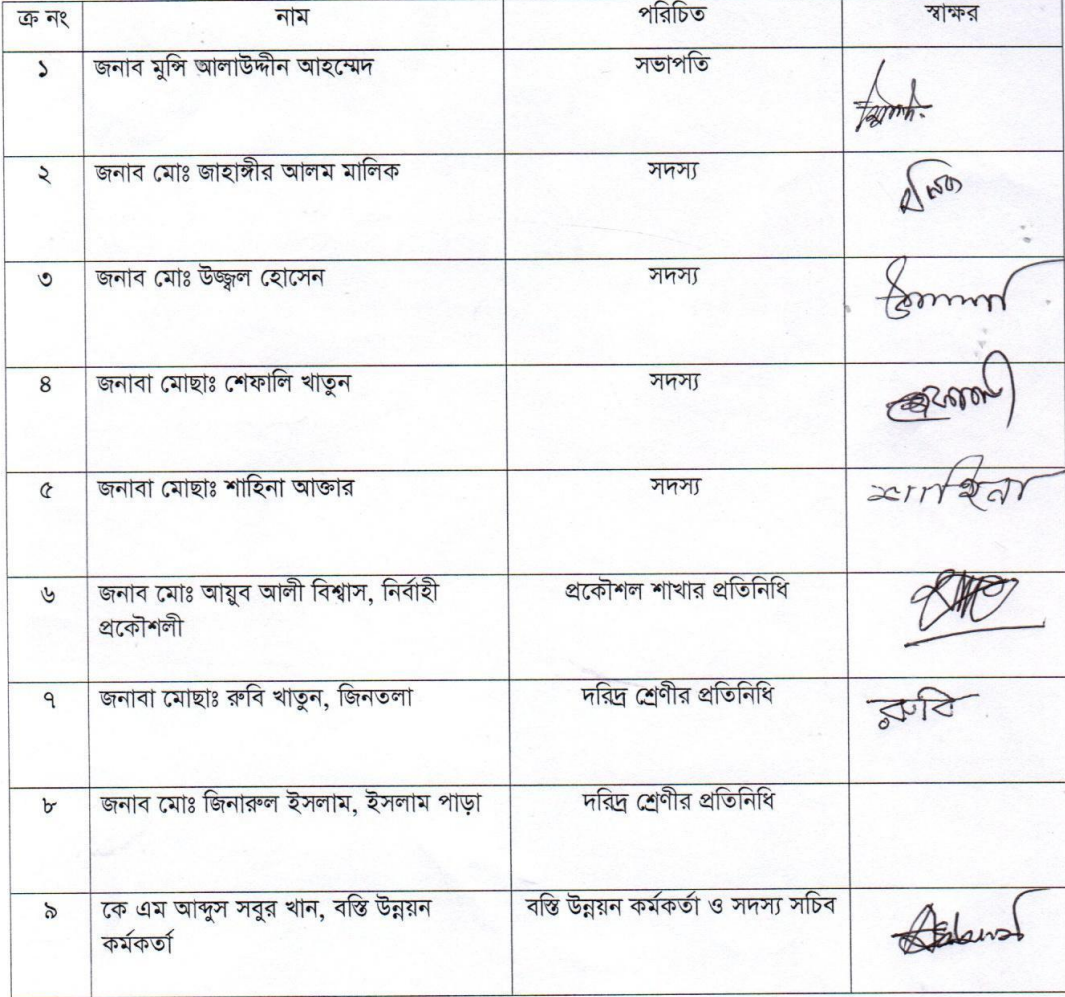 ক্র নং নাম পরিচিত স্বাক্ষর
১ জনাব মুন্সি আলাউদ্দীন আহম্মেদ সভাপতি
২ জনাব মোঃ জাহাঙ্গীর আলম মালিক সদস্য
৩ জনাব মোঃ উজ্জ্বল হোসেন সদস্য
৪ জনাবা মোছাঃ শেফালি খাতুন সদস্য
৫ জনাবা মোছাঃ শাহিনা আক্তার সদস্য শাহিনা
৬ জনাব মোঃ আয়ুব আলী বিশ্বাস, নির্বাহী প্রকৌশল শাখার প্রতিনিধি
প্রকৌশলী
৭ জনাবা মোছাঃ রুবি খাতুন, জিনতলা দরিদ্র শ্রেণীর প্রতিনিধি রুবি
৮ জনাব মোঃ জিনারুল ইসলাম, ইসলাম পাড়া দরিদ্র শ্রেণীর প্রতিনিধি
৯ কে এম আব্দুস সবুর খান, বস্তি উন্নয়ন বস্তি উন্নয়ন কর্মকর্তা ও সদস্য সচিব
কর্মকর্তা